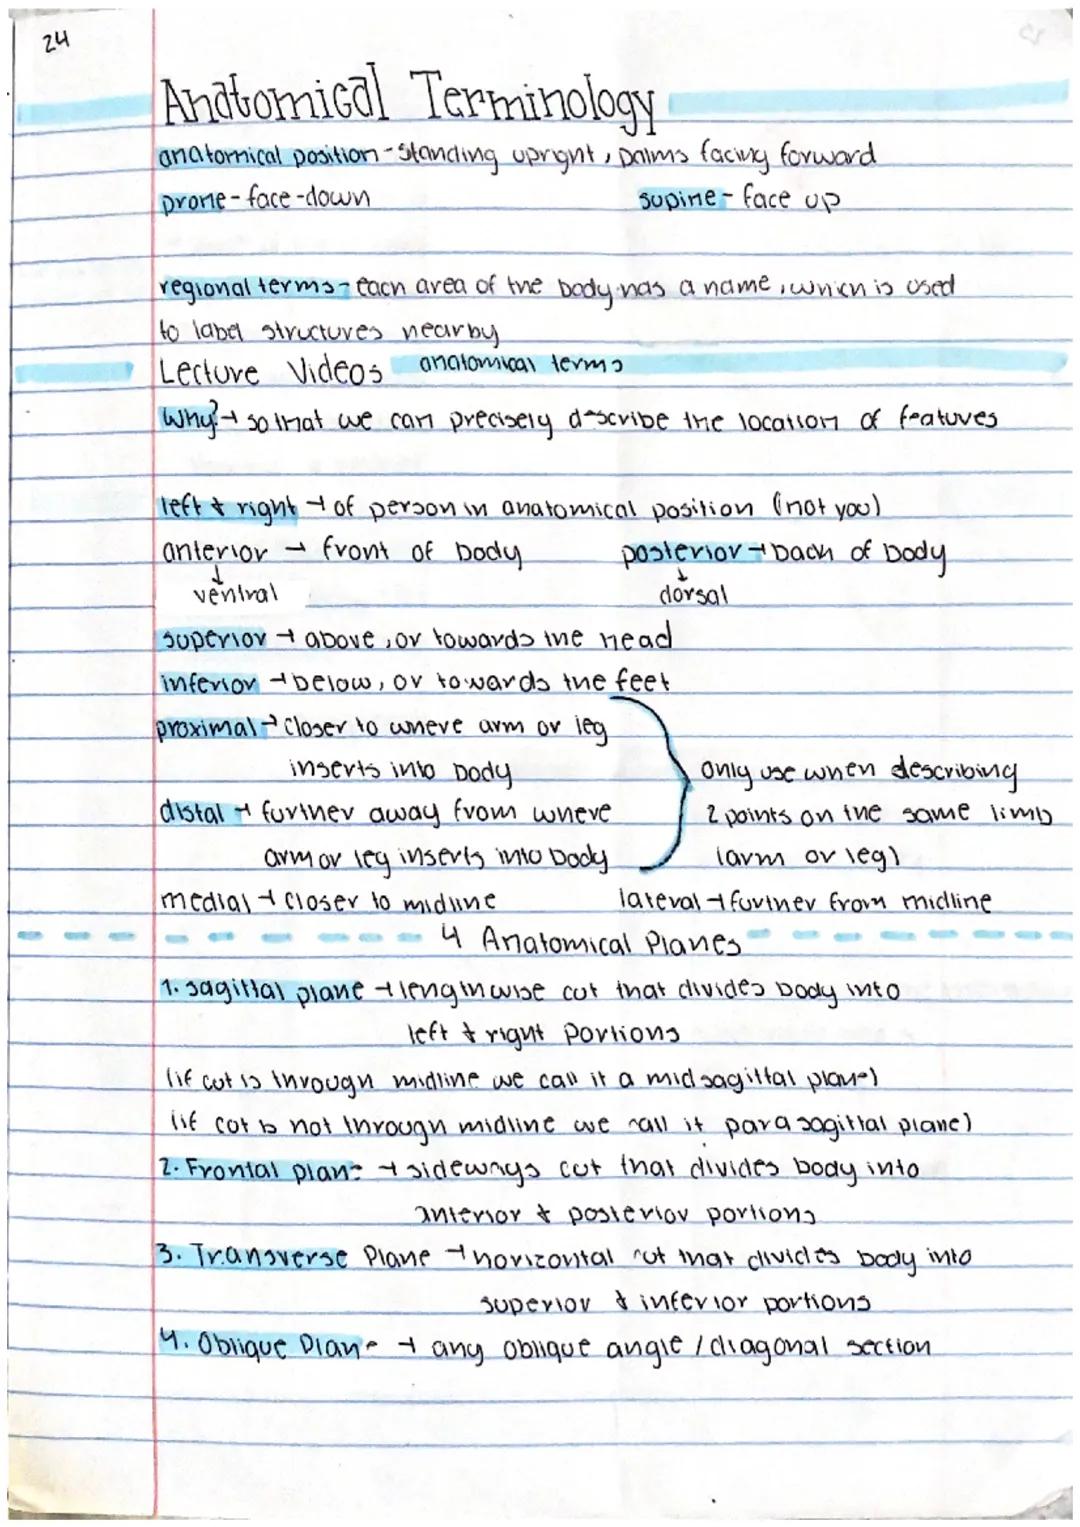 24
Anatomical Terminology
anatomical position - Standing upright, palms facing forward
prone - face-down supine - face up
regional terms - each area of the body has a name, which is used
to label structures nearby
Lecture Videos anatomical terms
Why? → so that we can precisely describe the location of features
left & right → of person in anatomical position (not you)
anterior → front of body posterior → back of body
↓ ventral ↓ dorsal
superior → above, or towards the head
inferior → below, or towards the feet
proximal → closer to where arm or leg
inserts into body only use when describing
distal → further away from where 2 points on the same limb
arm or leg inserts into body (arm or leg)
medial → closer to midline lateral → further from midline
4 Anatomical Planes
1. sagittal plane → lengthwise cut that divides body into
left & right portions
(if cut is through midline we call it a midsagittal plane)
(if cut is not through midline we call it parasagittal plane)
2. Frontal plane → sideways cut that divides body into
anterior & posterior portions
3. Transverse Plane → horizontal cut that divides body into
superior & inferior portions
4. Oblique Plane → any oblique angle / diagonal section